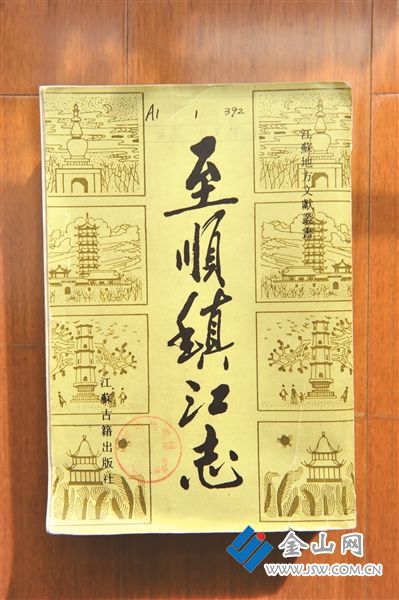 A1 1 392
江蘇地方文獻叢書
至順鎮江志
江蘇古籍出版社
金山网
WWW.JSW.COM.CN